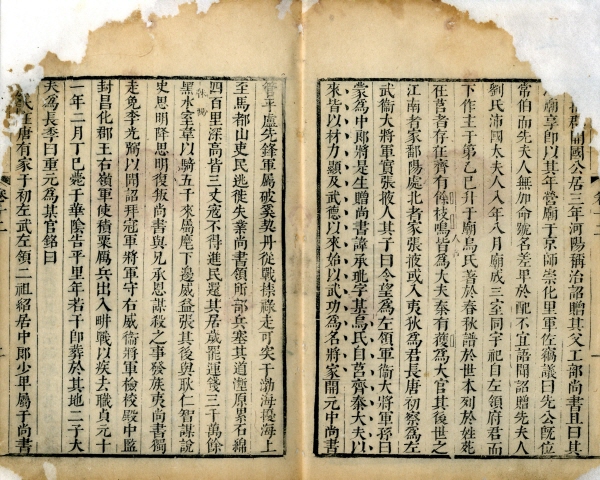 郡開國公居三年河陽稱治詔贈其父工部尚書且曰其
廟享即以其年營廟于京師崇化里軍佐竊議曰先公既位
常伯而先夫人無加命號名差卑於配不宜語聞詔贈先夫人
劉氏沛國太夫人八年八月廟成三室同宇祀自左領府君而
下作主于第乙巳升于廟烏氏著於春秋譜於世本列於姓苑
在莒者存在齊有餘枝鳴皆為大夫秦有獲為大官其後世之
江南者家鄱陽處北者家張掖或入夷狄為君長唐初察為左
武衞大將軍實張掖人其子曰令望為左領軍衞大將軍孫曰
蒙為中郎將是生贈尚書諱承玼字某烏氏自莒齊秦大夫以
來皆以材力顯及武德以來始以武功為名將家開元中尚書
管平盧先鋒軍屬破奚契丹從戰捺祿走可突干渤海擾海上
至馬都山吏民逃徙失業尚書領所部兵塞其道塹原累石綿
四百里深高皆三丈寇不得進民還其居歲罷運錢三千萬餘
黑水室韋以騎五千來屬麾下邊威益張其後與耿仁智謀說
史思明降思明復叛尚書與兄承恩謀殺之事發族夷尚書獨
走免李光弼以聞詔拜冠軍將軍守右威衞將軍檢校殿中監
封昌化郡王右嶺軍使積粟厲兵出入耕戰以疾去職貞元十
一年二月丁巳薨于華陰告平里年若干即葬於其地二子大
夫為長季曰重元為某官銘曰
氏在唐有家于初左武左領二祖紹居中郎少卑屬于尚書
卷十二